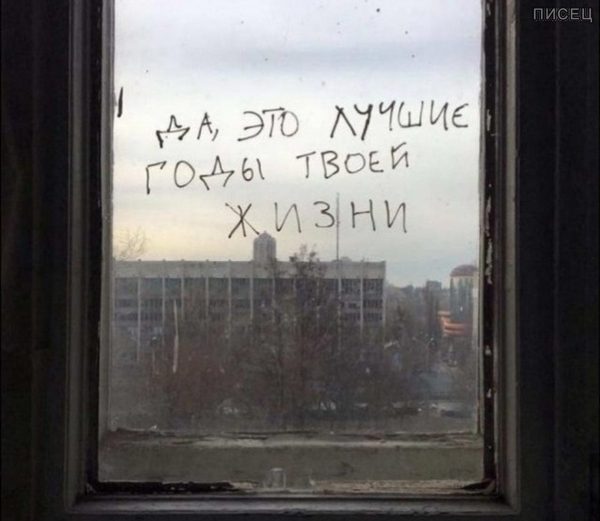 ПИСЕЦ
ДА, ЭТО ЛУЧШИЕ
ГОДЫ ТВОЕЙ
ЖИЗНИ